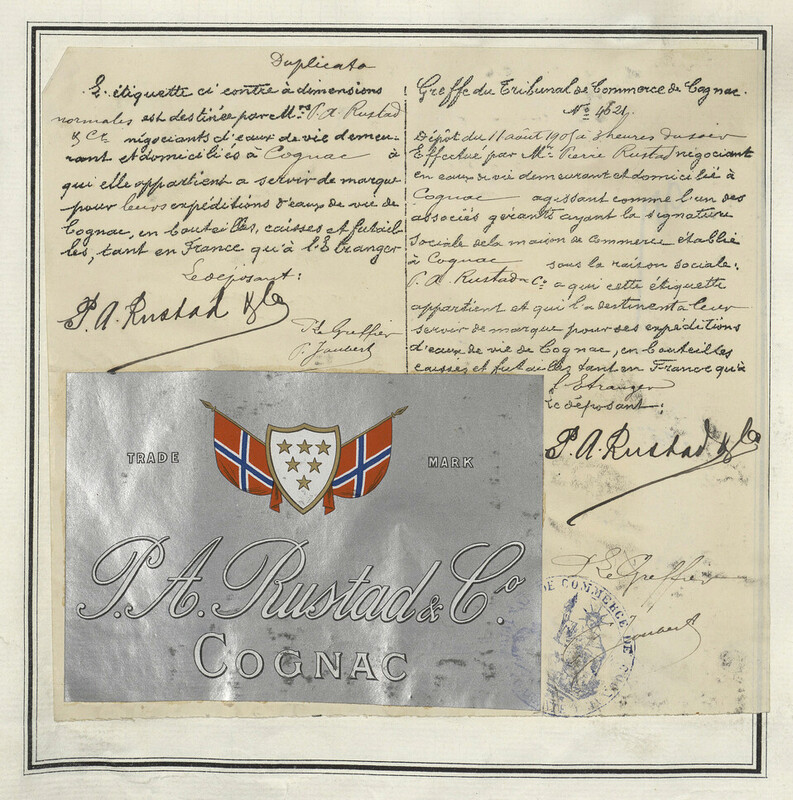 Duplicata
L'étiquette ci contre à dimensions
normales est destinée par Mrs P. A. Rustad
& Cie négociants d'eaux de vie demeu-
rant et domiciliés à Cognac à
qui elle appartient a servir de marque
pour leurs expéditions d'eaux de vie de
Cognac, en bouteilles, caisses et futail-
les, tant en France qu'à l'Etranger
Le déposant:
P. A. Rustad & Co
Le Greffier
P. Joubert
Greffe du Tribunal de Commerce de Cognac.
No 4621.
Dépôt du 11 août 1905 à 3 heures du soir
Effectué par Mr Pierre Rustad négociant
en eaux de vie demeurant et domicilié à
Cognac agissant comme l'un des
associés gérants ayant la signature
sociale de la maison de commerce établie
à Cognac sous la raison sociale:
P. A. Rustad & Co a qui cette étiquette
appartient et qui l'a destinent à leur
servir de marque pour ses expéditions
d'eaux de vie de Cognac, en bouteilles
caisses et futailles tant en France qu'à
l'Etranger
Le déposant:
P. A. Rustad & Co
Le Greffier
Joubert
TRADE MARK
P. A. Rustad & Co.
COGNAC
DE COMMERCE DE